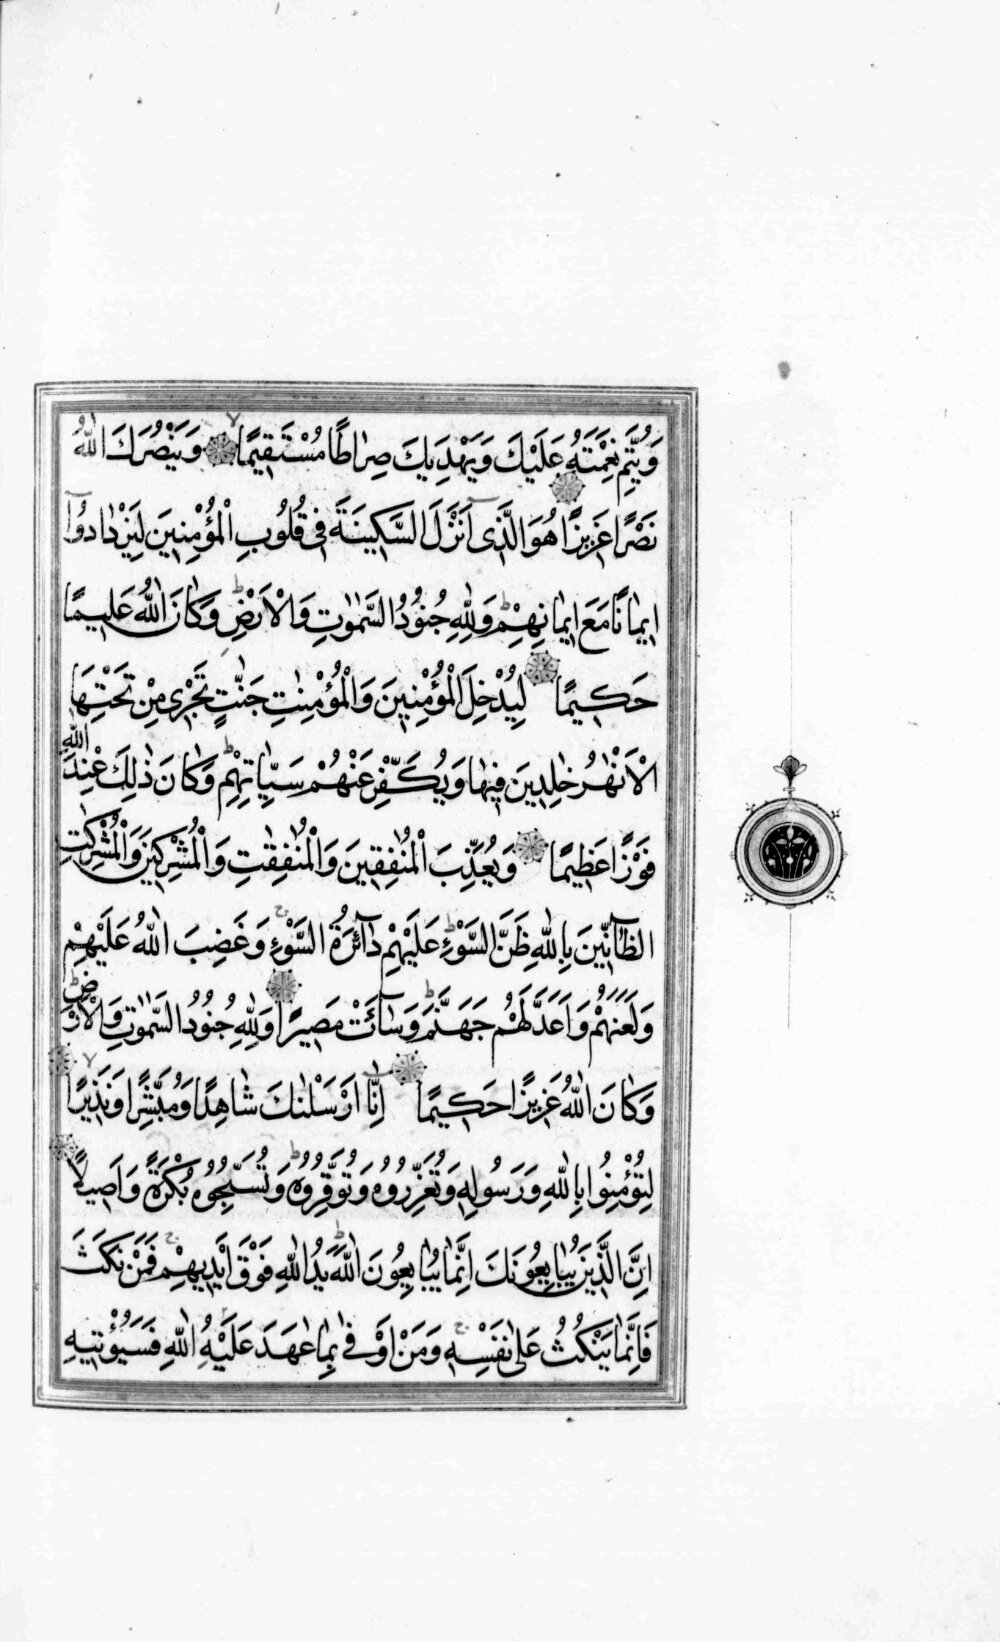 وَيُتِمَّ نِعْمَتَهُ عَلَيْكَ وَيَهْدِيَكَ صِرٰاطًا مُسْتَقِيمًا وَيَنْصُرَكَ اللّٰهُ
نَصْرًا عَزِيزًا هُوَ الَّذِى اَنْزَلَ السَّكِينَةَ فِى قُلُوبِ الْمُؤْمِنِينَ لِيَزْدٰادُوٓا
اِيمٰانًا مَعَ اِيمٰانِهِمْ وَلِلّٰهِ جُنُودُ السَّمٰوٰتِ وَالْاَرْضِ وَكٰانَ اللّٰهُ عَلِيمًا
حَكِيمًا لِيُدْخِلَ الْمُؤْمِنِينَ وَالْمُؤْمِنٰتِ جَنّٰتٍ تَجْرِى مِنْ تَحْتِهَا
الْاَنْهٰرُ خٰلِدِينَ فِيهٰا وَيُكَفِّرَ عَنْهُمْ سَيِّاٰتِهِمْ وَكٰانَ ذٰلِكَ عِنْدَ اللّٰهِ
فَوْزًا عَظِيمًا وَيُعَذِّبَ الْمُنٰفِقِينَ وَالْمُنٰفِقٰتِ وَالْمُشْرِكِينَ وَالْمُشْرِكٰتِ
الظّٰٓانِّينَ بِاللّٰهِ ظَنَّ السَّوْءِ عَلَيْهِمْ دٰٓائِرَةُ السَّوْءِ وَغَضِبَ اللّٰهُ عَلَيْهِمْ
وَلَعَنَهُمْ وَاَعَدَّ لَهُمْ جَهَنَّمَ وَسٰٓائَتْ مَصِيرًا وَلِلّٰهِ جُنُودُ السَّمٰوٰتِ وَالْاَرْضِ
وَكٰانَ اللّٰهُ عَزِيزًا حَكِيمًا اِنّٰٓا اَرْسَلْنٰكَ شٰاهِدًا وَمُبَشِّرًا وَنَذِيرًا
لِتُؤْمِنُوا بِاللّٰهِ وَرَسُولِهِ وَتُعَزِّرُوهُ وَتُوَقِّرُوهُ وَتُسَبِّحُوهُ بُكْرَةً وَاَصِيلًا
اِنَّ الَّذِينَ يُبٰايِعُونَكَ اِنَّمٰا يُبٰايِعُونَ اللّٰهَ يَدُ اللّٰهِ فَوْقَ اَيْدِيهِمْ فَمَنْ نَكَثَ
فَاِنَّمٰا يَنْكُثُ عَلٰى نَفْسِهِ وَمَنْ اَوْفٰى بِمٰا عٰهَدَ عَلَيْهُ اللّٰهَ فَسَيُؤْتِيهِ